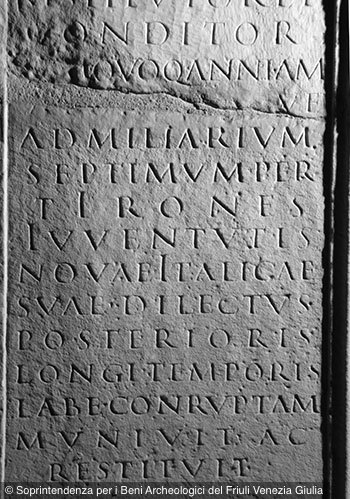 CONDITOR
QVOQ ANNIAM
AD MILIARIVM·
SEPTIMVM·PER
TIRONES
IVVENTVTIS
NOVAE ITALICAE
SVAE·DILECTVS·
POSTERIORIS
LONGI·TEMPORIS
LABE·CONRVPTAM
MVNIVIT·AC
RESTITVIT
© Soprintendenza per i Beni Archeologici del Friuli Venezia Giulia